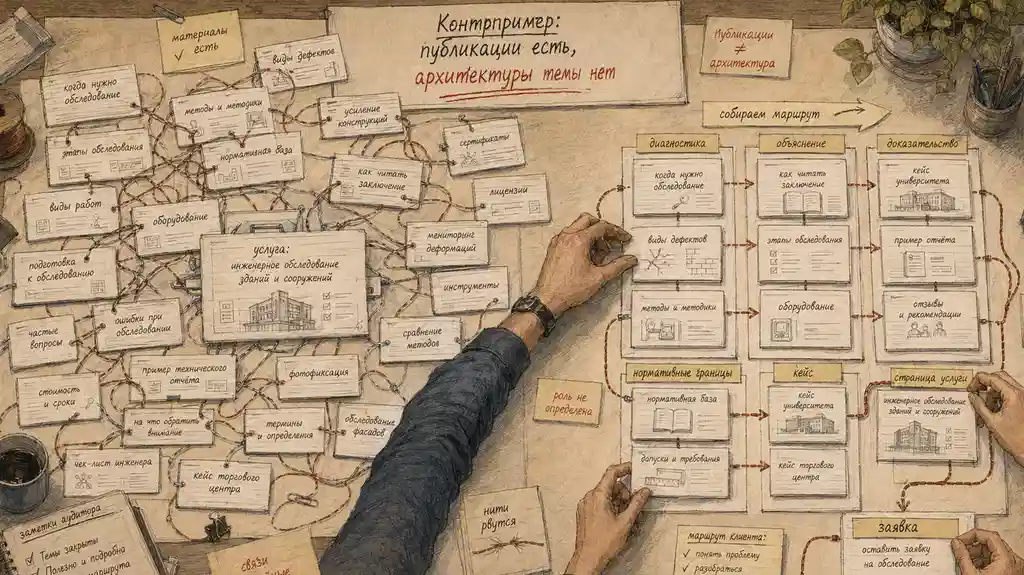 материалы
✓ есть
Контрпример:
публикации есть,
архитектуры темы нет
Публикации
≠
архитектура
когда нужно
обследование
виды дефектов
методы и методики
усиление
конструкций
этапы обследования
нормативная база
сертификаты
как читать
заключение
лицензии
виды работ
оборудование
мониторинг
деформаций
подготовка
к обследованию
услуга:
инженерное обследование
зданий и сооружений
инструменты
частые
вопросы
ошибки при
обследовании
сравнение
методов
пример технического
отчёта
фотофиксация
стоимость
и сроки
на что обратить
внимание
термины
и определения
обследование
фасадов
чек-лист инженера
кейс торгового
центра
заметки аудитора
✓ Темы закрыты
✓ Полезно и подробно
маршрута
связи
нити
рвутся
роль не
определена
собираем маршрут
диагностика
объяснение
доказательство
когда нужно
обследование
как читать
заключение
кейс
университета
виды дефектов
этапы обследования
пример отчёта
методы и методики
оборудование
отзывы
и рекомендации
нормативные границы
кейс
страница услуги
нормативная база
кейс
университета
инженерное обследование
зданий и сооружений
допуски и требования
кейс торгового
центра
маршрут клиента:
✓ понять проблему
✓ разобраться
заявка
оставить заявку
на обследование